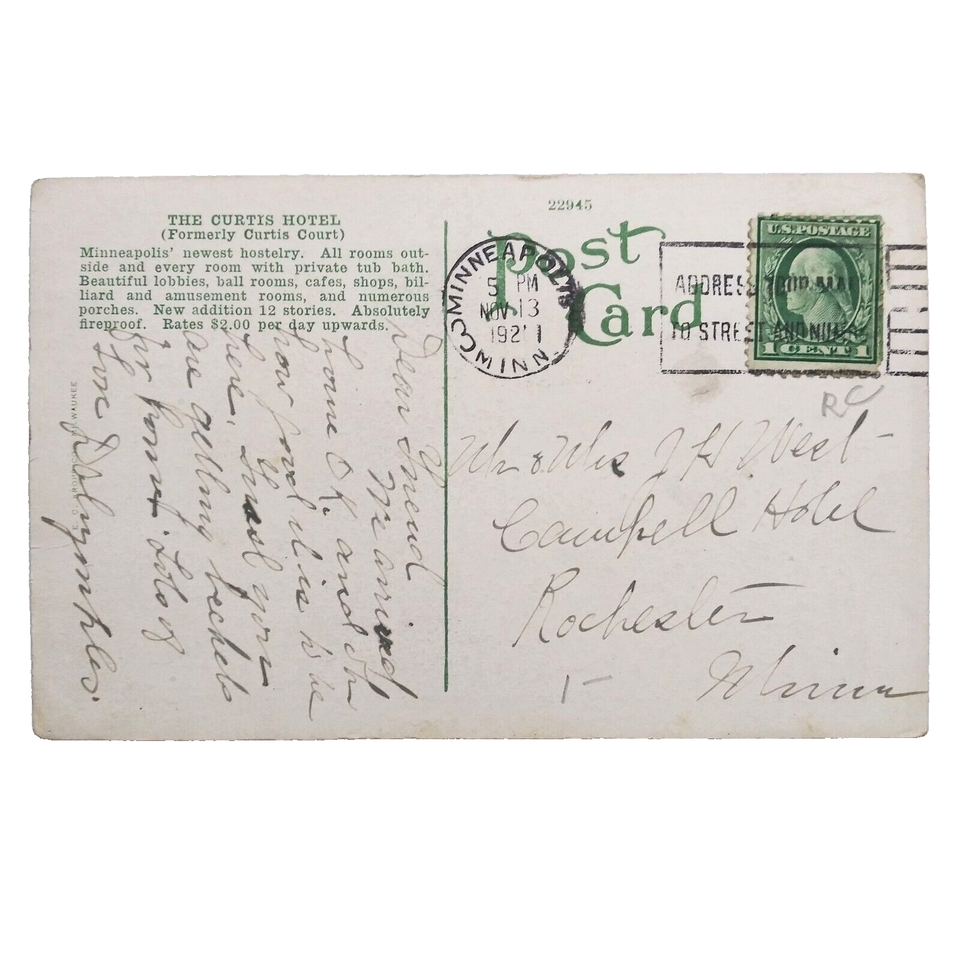 THE CURTIS HOTEL
(Formerly Curtis Court)
Minneapolis' newest hostelry. All rooms out-
side and every room with private tub bath.
Beautiful lobbies, ball rooms, cafes, shops, bil-
liard and amusement rooms, and numerous
porches. New addition 12 stories. Absolutely
fireproof. Rates $2.00 per day upwards.
22945
Post
Card
MINNEAPOLIS
MINN
5 PM
NOV 13
1921
ADDRESS YOUR MAIL
TO STREET AND NUMBER
U.S. POSTAGE
1 CENT 1
RC
Mr & Mrs J H West
Campbell Hotel
Rochester
Minn
1-
Dear Friend
We arrived
home O K and oh
how good it is to be
here. Trust you
are getting better
for home. Lots of
love
MILWAUKEE